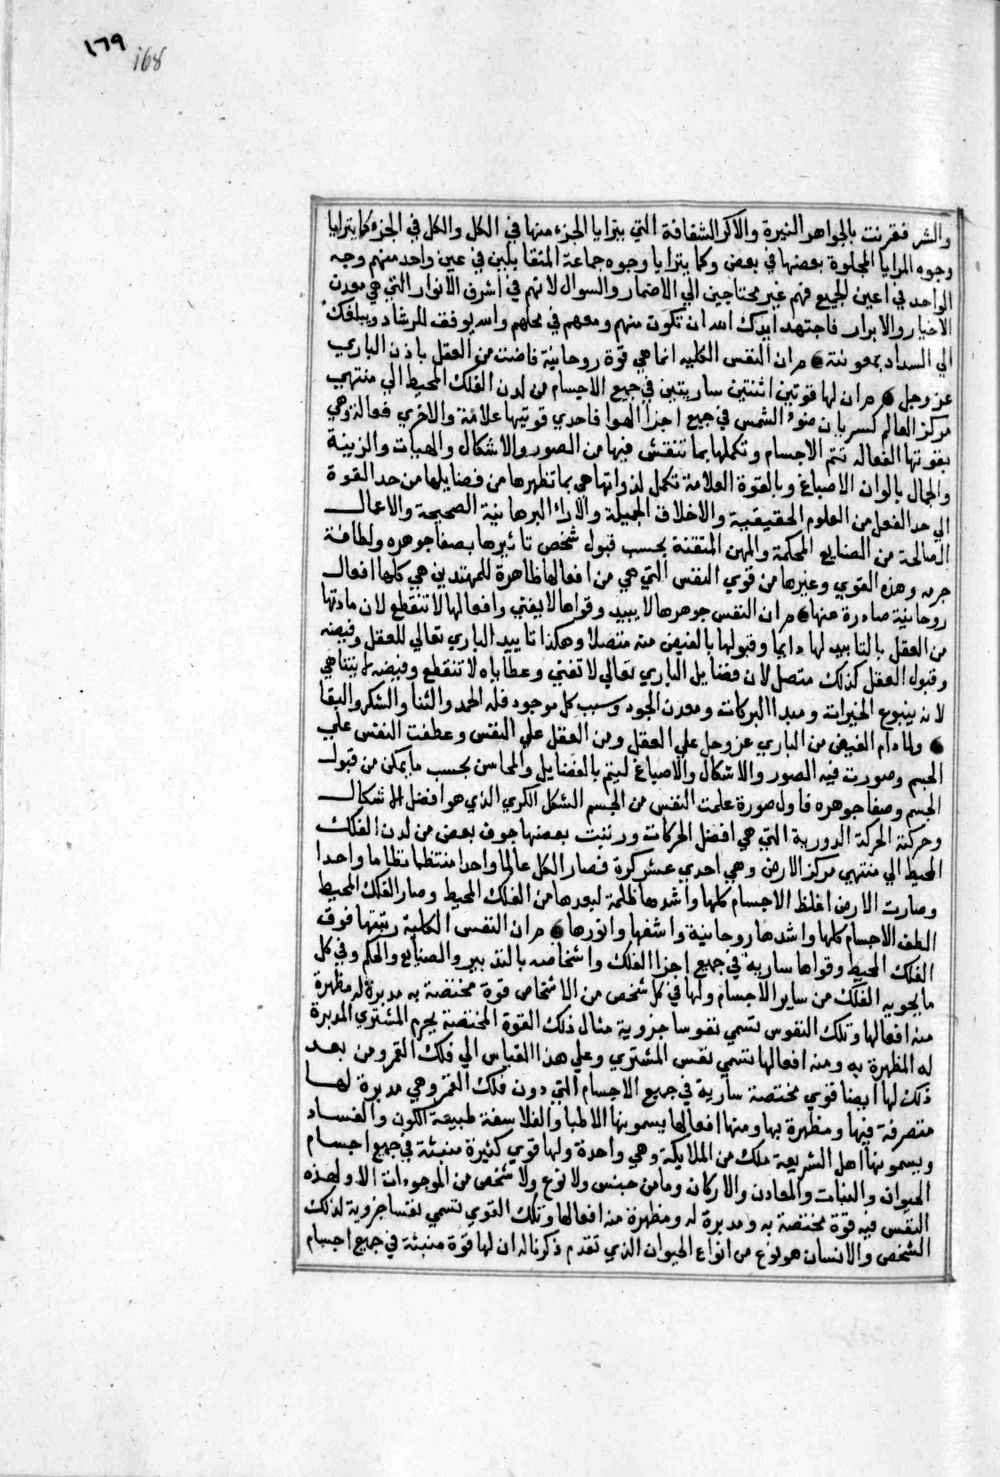 ١٦٩
168
والشر فقرنت بالجواهر النيرة والاكر الشفافة التي يترايا الجزء منها في الكل والكل في الجزء كما يترايا
وجوه المرايا المجلوة بعضها في بعض وكما يترايا وجوه جماعة المتقابلين في عين واحد منهم وجه
الواحد في اعين الجميع فهم غير محتاجين الي الاضمار والسوال لانهم في اشرف الانوار التي هي معدن
الاخيار والابرار فاجتهد ايدك الله ان تكون منهم ومعهم في محلهم والله يوفقك للرشاد ويبلغك
الي السداد بمعونته ان النفس الكلية انما هي قوة روحانية فاضت من العقل باذن الباري
عز وجل ان لها قوتين اثنتين ساريتين في جميع الاجسام من لدن الفلك المحيط الي منتهي
مركز العالم كسريان ضوء الشمس في جميع اجزا الهوا فاحدي قوتيها علامة والاخري فعالة وهي
بقوتها الفعاله تتم الاجسام وتكملها بما تنقش فيها من الصور والاشكال والهيات والزينة
والجمال بالوان الاصباغ وبالقوة العلامة تكمل لذواتها هي بما تظهرها من فضايلها من حد القوة
الي حد الفعل من العلوم الحقيقية والاخلاق الجميلة والآراء البرهانية الصحيحة والاعمال
الصالحة من الصنايع المحكمة والمهن المتقنة بحسب قبول شخص شخص تاثيرها بصفا جوهره ولطافة
جرمه وهذه القوي وغيرها من قوي النفس التي هي من افعالها ظاهرة للمهتدين هي كلها افعال
روحانية صادرة عنها ان النفس جوهرها لا يبيد وقواها لا يفني وافعالها لا تنقطع لان مادتها
من العقل بالتاييد لها دايما وقبولها بالفيض منه متصلا وهكذا تاييد الباري تعالي للعقل وفيضه
وقبول العقل كذلك متصل لان فضايل الباري تعالي لا تفني وعطاياه لا تنقطع وفيضه لا يتناهي
لانه ينبوع الخيرات ومبدا البركات ومعدن الجود وسبب كل موجود فله الحمد والثنا والشكر والبقا
ولما دام الفيض من الباري عز وجل علي العقل ومن العقل علي النفس وعطفت النفس علي
الجسم وصورت فيه الصور والاشكال والاصباغ ليتم بالفضايل والمحاسن بحسب ما يمكن من قبول
الجسم وصفا جوهره فاول صورة علمت النفس من الجسم الشكل الكري الذي هو افضل الاشكال
وحركته الحركة الدورية التي هي افضل الحركات ورتبت بعضها جوف بعض من لدن الفلك
المحيط الي منتهي مركز الارض وهي احدي عشر كرة فصار الكل عالما واحدا منتظما نظاما واحدا
وصارت الارض اغلظ الاجسام كلها واشدها ظلمة لبعدها من الفلك المحيط وصار الفلك المحيط
الطف الاجسام كلها واشدها روحانية واشفها وانورها ان النفس الكلية رتبتها فوق
الفلك المحيط وقواها سارية في جميع اجزا الفلك واشخاصه بالتدبير والصنايع والحكم وفي كل
ما يحويه الفلك من ساير الاجسام ولها في كل شخص من الاشخاص قوة مختصة به مدبرة له مظهرة
منه افعالها وتلك النفوس تسمي نفوسا جزوية مثال ذلك القوة المختصة بجرم المشتري المدبرة
له المظهرة به ومنه افعالها تسمي نفس المشتري وعلي هذا القياس الي فلك القمر ومن بعد
ذلك لها ايضا قوي مختصة سارية في جميع الاجسام التي دون فلك القمر وهي مدبرة لها
متصرفة فيها ومظهرة بها ومنها افعالها يسمونها الاطبا والفلاسفة طبيعة الكون والفساد
ويسمونها اهل الشريعة ملك من الملايكة وهي واحدة ولها قوي كثيرة منبثة في جميع اجسام
الحيوان والنبات والمعادن والاركان وما من جنس ولا نوع ولا شخص من الموجودات الا ولهذه
النفس فيه قوة مختصة به ومدبرة له ومظهرة منه افعالها وتلك القوي تسمي نفسا جزوية لذلك
الشخص والانسان هو نوع من انواع الحيوان الذي تقدم ذكرناله ان لها قوة منبثة في جميع اجسام